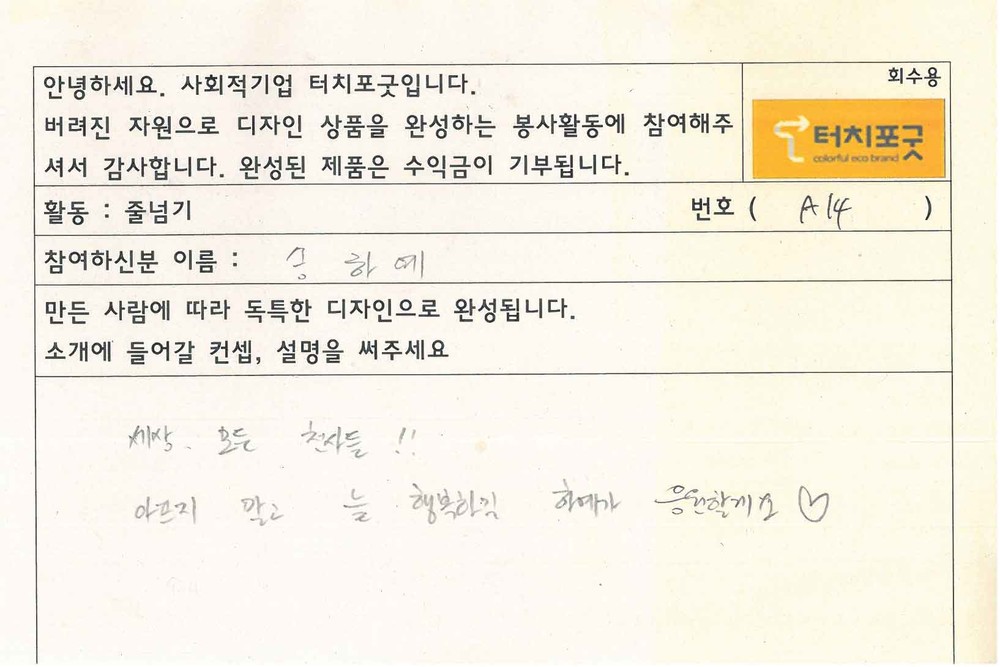 안녕하세요. 사회적기업 터치포굿입니다.
버려진 자원으로 디자인 상품을 완성하는 봉사활동에 참여해주
셔서 감사합니다. 완성된 제품은 수익금이 기부됩니다.
회수용
터치포굿
colorful eco brand
활동 : 줄넘기
번호 ( A14 )
참여하신분 이름 : 송하예
만든 사람에 따라 독특한 디자인으로 완성됩니다.
소개에 들어갈 컨셉, 설명을 써주세요
세상. 모든 천사들 !!
아프지 말고 늘 행복하길 하예가 응원할게요 ♡